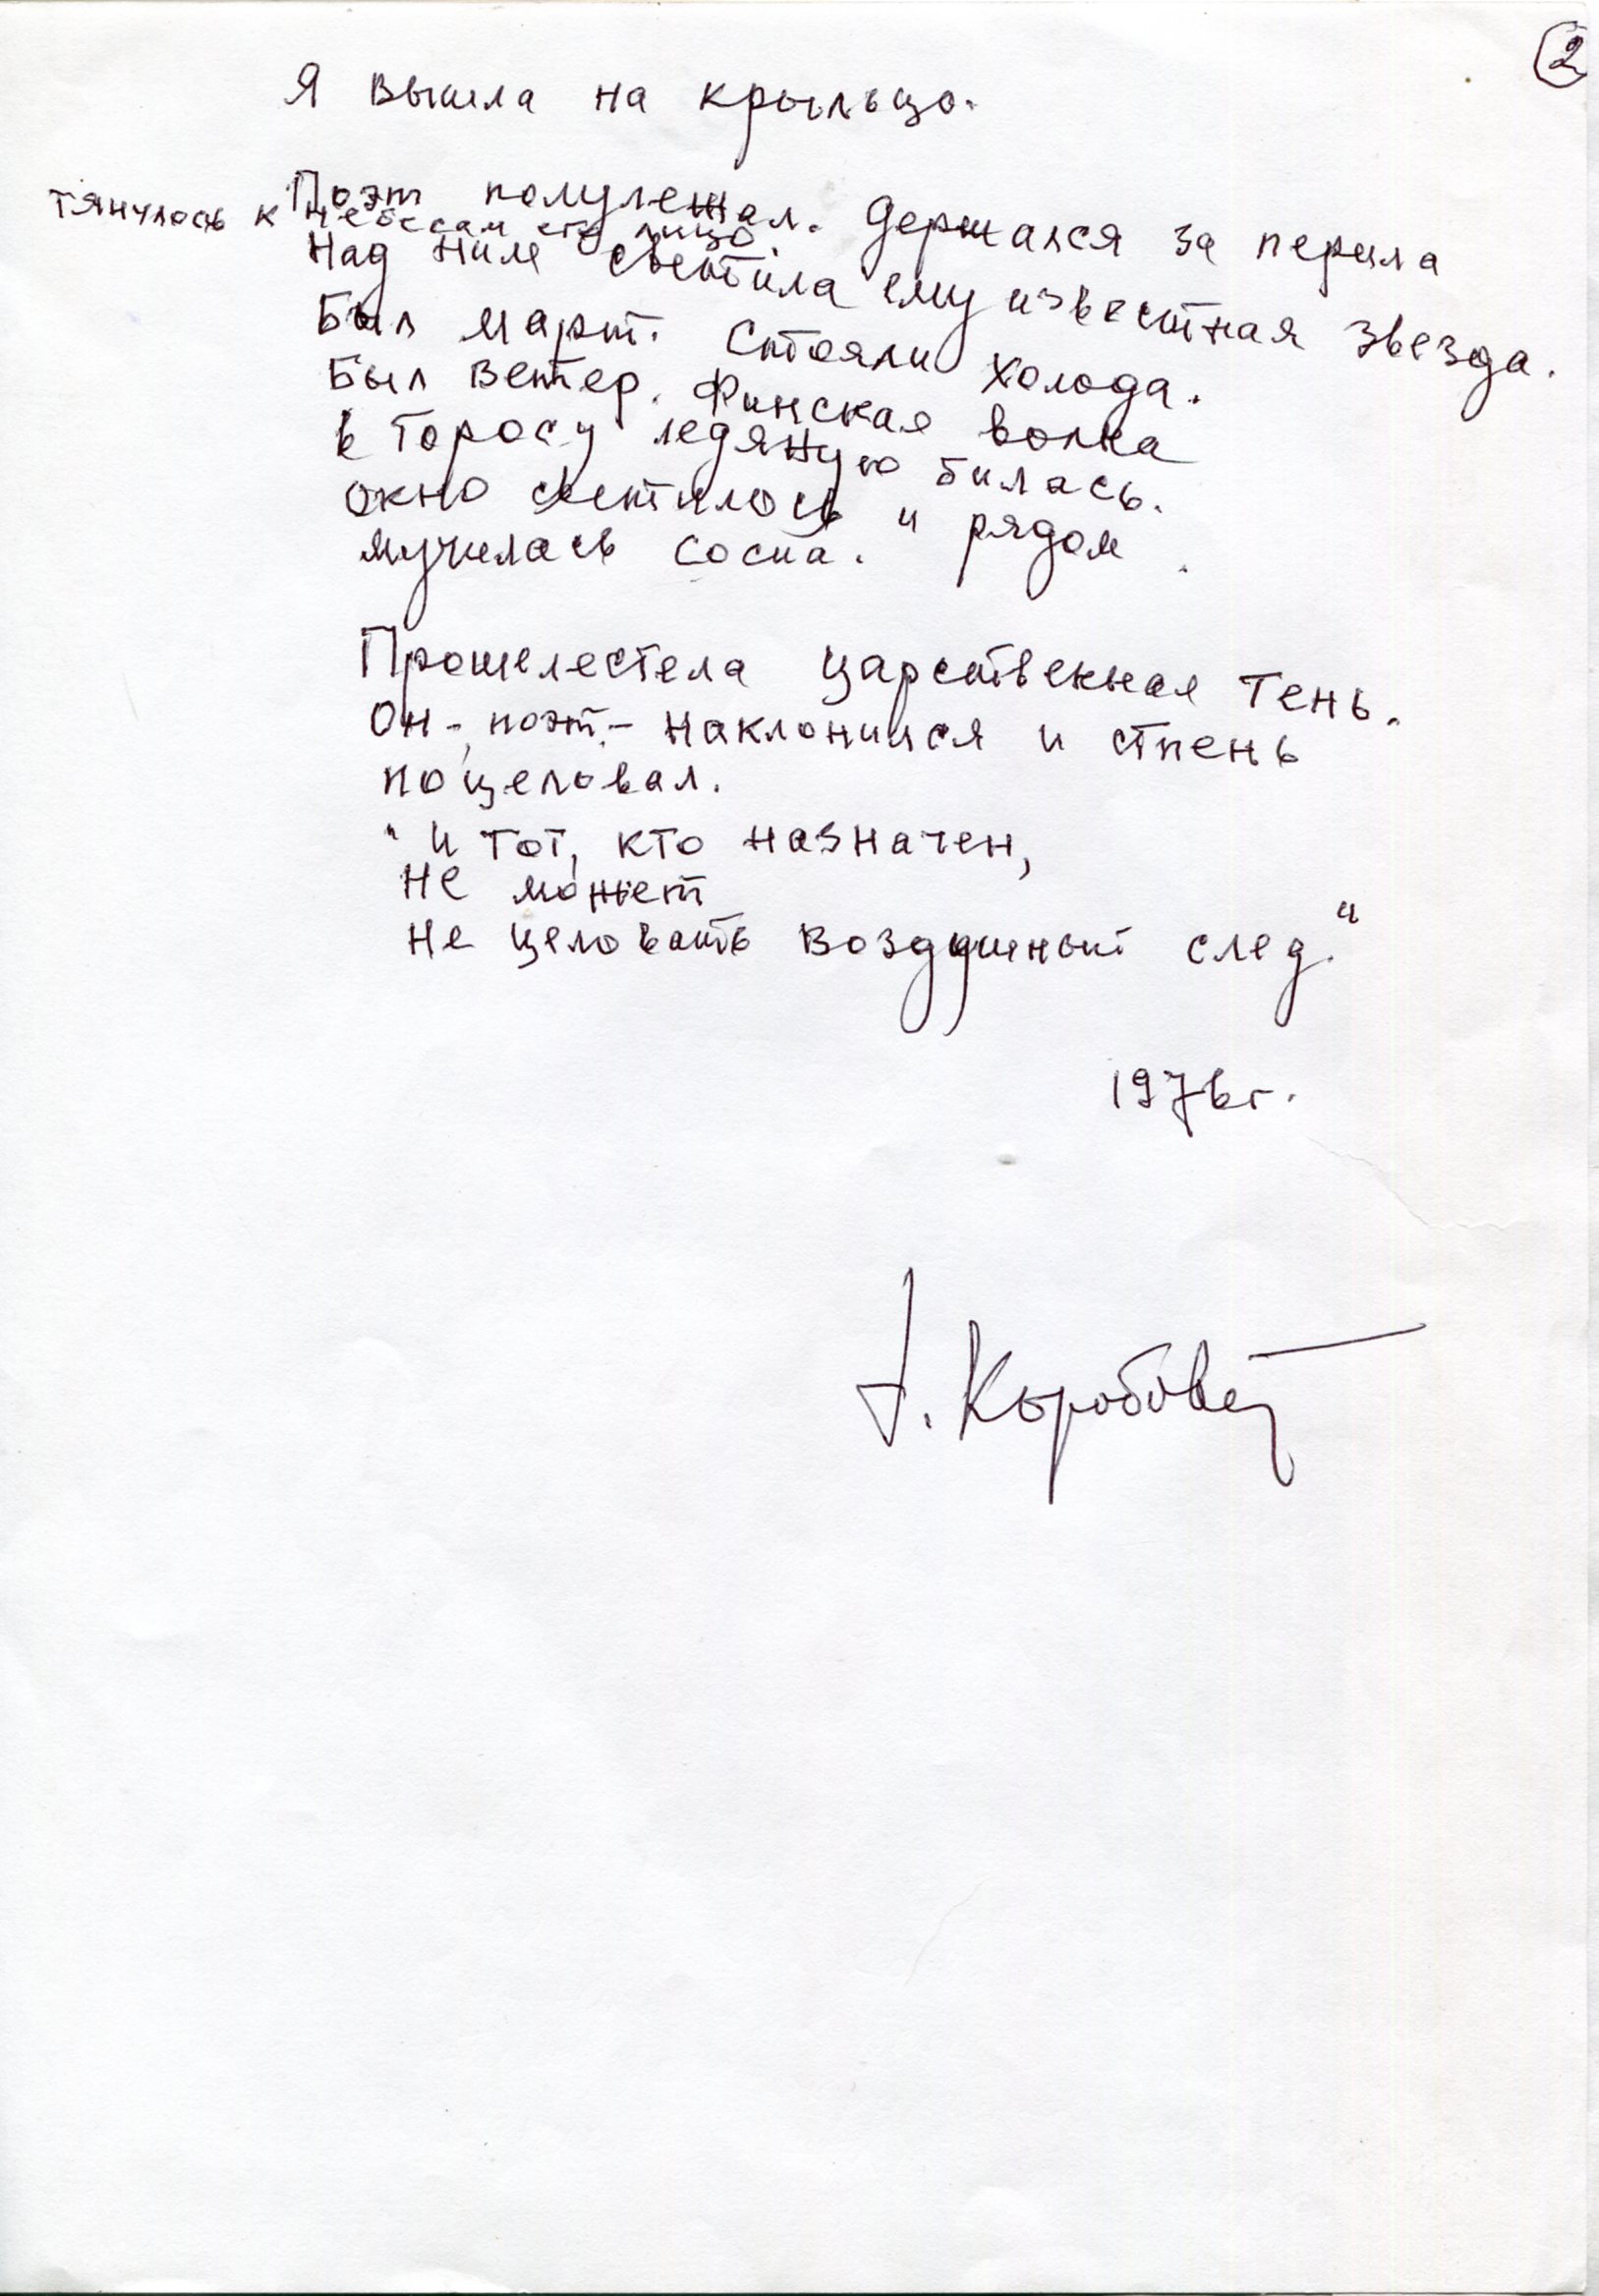 2
Я вышла на крыльцо.
Поэт полулежал. Держался за перила
тянулось к небесам его лицо.
Над ним светила ему известная звезда.
Был март. Стояли холода.
Был ветер. Финская волна
в торосу ледяную билась.
окно светилось и рядом
мучилась сосна.
Прошелестела царственная тень.
Он - поэт - наклонился и ступень
поцеловал.
"И тот, кто назначен,
Не может
Не целовать воздушный след."
1976г.